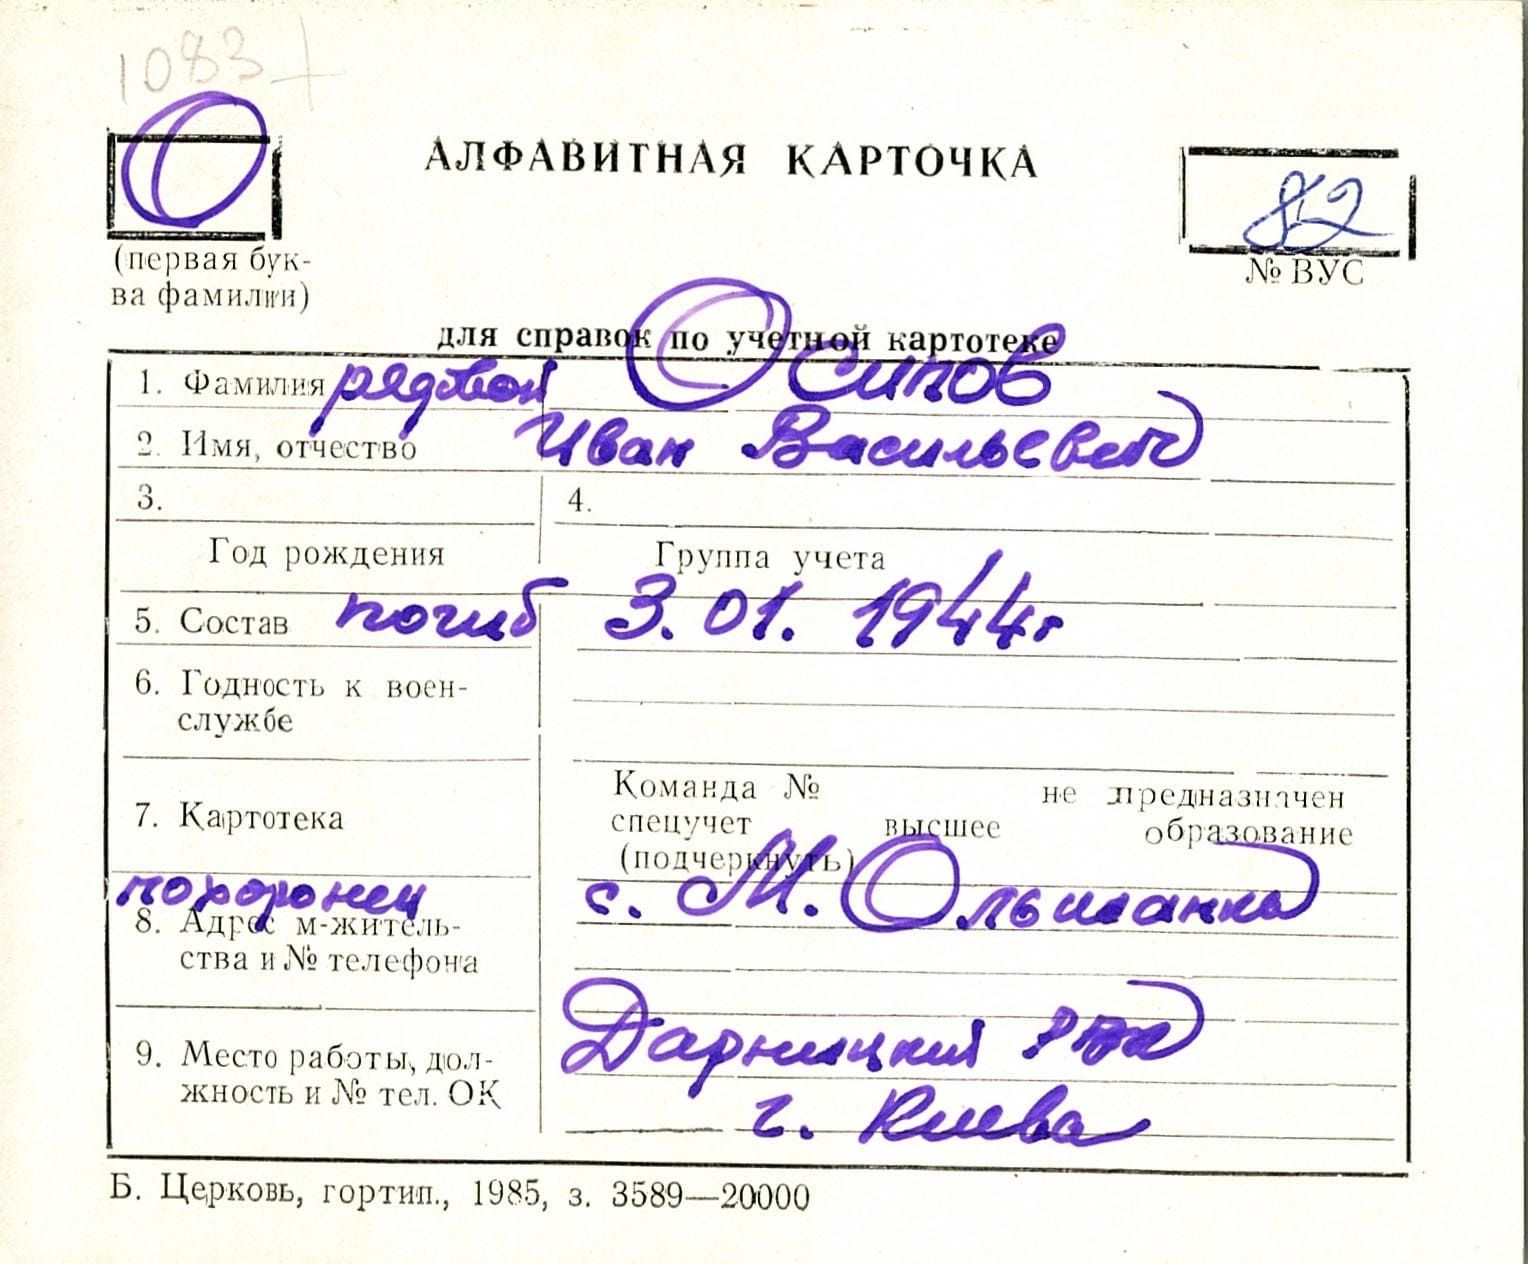 1083+
О
АЛФАВИТНАЯ КАРТОЧКА
82
(первая бук-
ва фамилии)
№ ВУС
для справок по учетной картотеке
1. Фамилия рядовой Осипов
2. Имя, отчество Иван Васильевич
3. 4.
Год рождения Группа учета
5. Состав погиб 3.01.1944г
6. Годность к воен-
службе
Команда № не предназначен
7. Картотека
спецучет высшее образование
(подчеркнуть)
похоронен с. М. Ольшанка
8. Адрес м-житель-
ства и № телефона
Дарницкий
9. Место работы, дол-
жность и № тел. ОК
г. Киева
Б. Церковь, гортип., 1985, з. 3589—20000